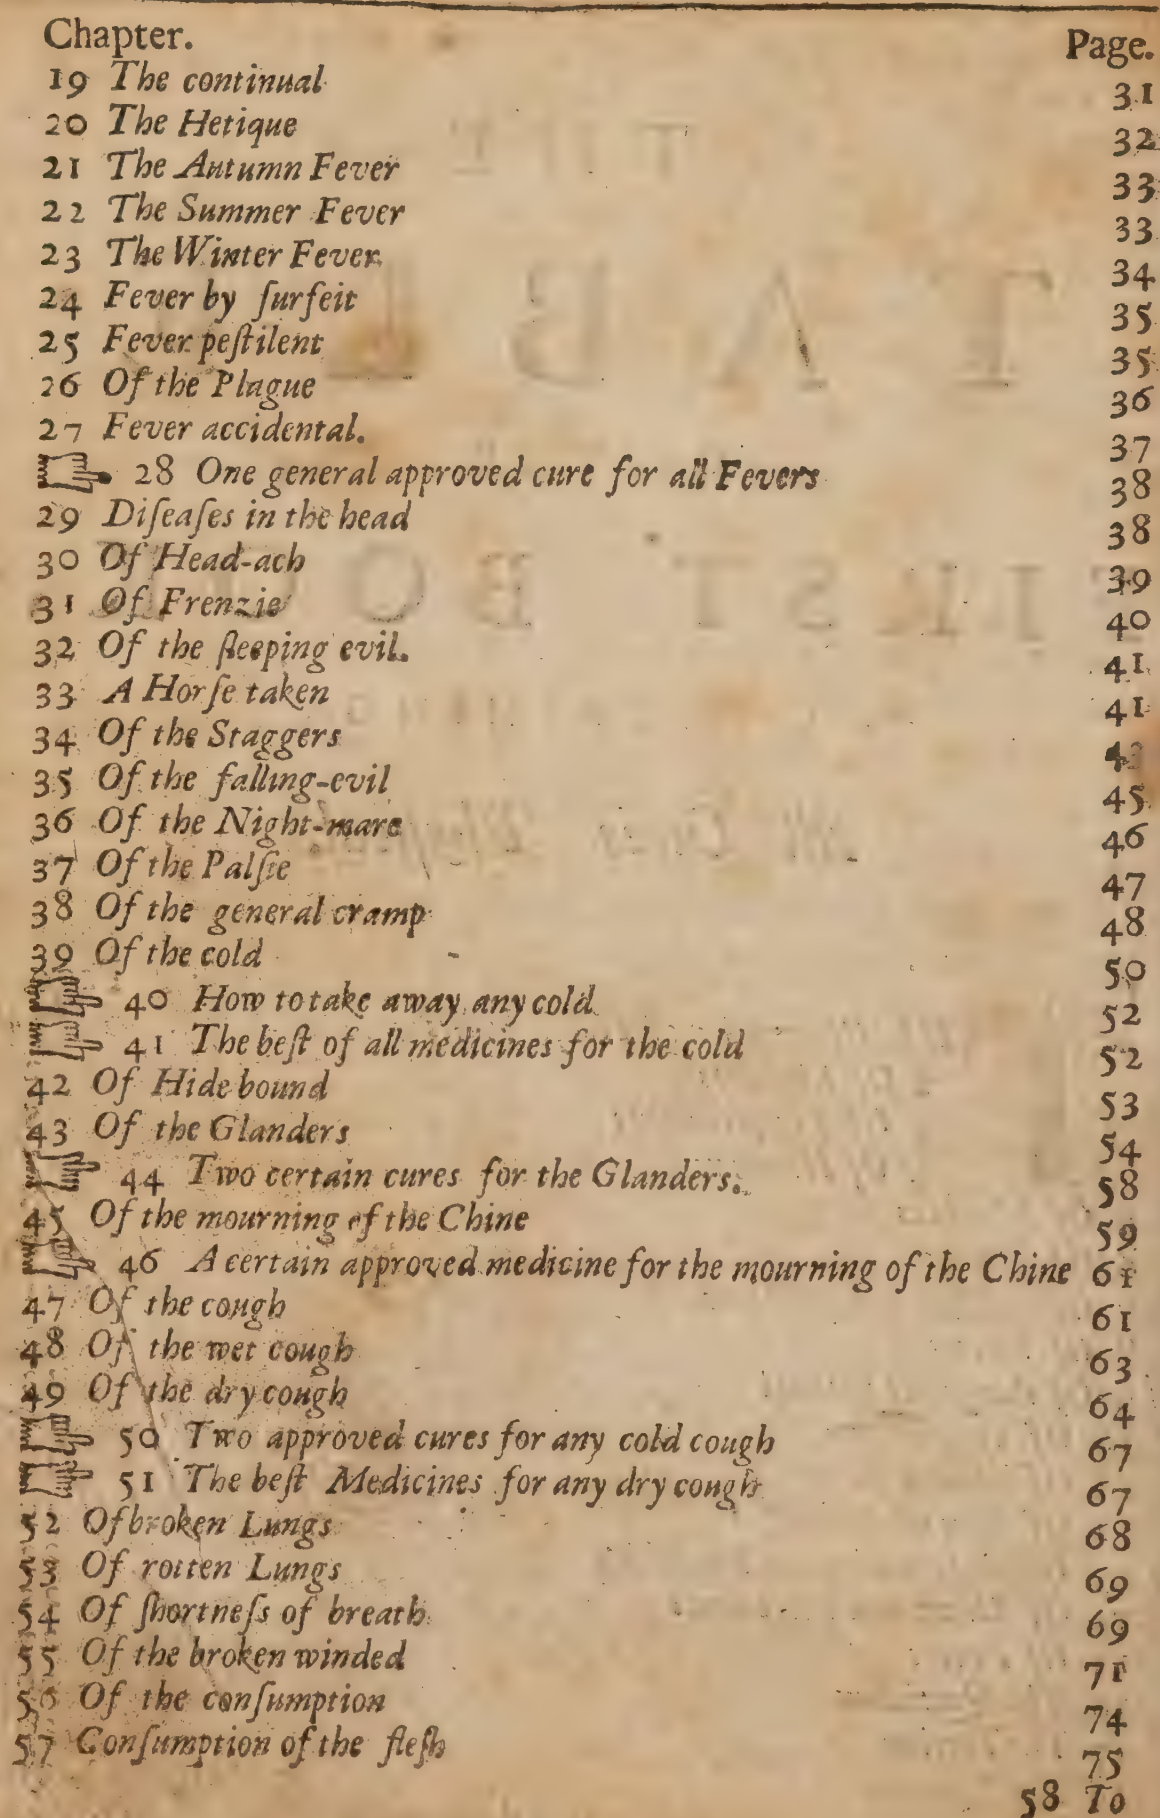 Chapter. Page.
19 The continual 31
20 The Hetique 32
21 The Autumn Fever 33
22 The Summer Fever 33
23 The Winter Fever 34
24 Fever by ſurfeit 35
25 Fever peſtilent 35
26 Of the Plague 36
27 Fever accidental. 37
28 One general approved cure for all Fevers 38
29 Diſeaſes in the head 38
30 Of Head-ach 39
31 Of Frenzie 40
32 Of the ſleeping evil. 41
33 A Horſe taken 41
34 Of the Staggers
35 Of the falling-evil 45
36 Of the Night-mare 46
37 Of the Palſie 47
38 Of the general cramp 48
39 Of the cold 50
40 How to take away any cold 52
41 The beſt of all medicines for the cold 52
42 Of Hide bound 53
43 Of the Glanders 54
44 Two certain cures for the Glanders. 58
45 Of the mourning of the Chine 59
46 A certain approved medicine for the mourning of the Chine 61
47 Of the cough 61
48 Of the wet cough 63
49 Of the dry cough 64
50 Two approved cures for any cold cough 67
51 The beſt Medicines for any dry cough 67
52 Of broken Lungs 68
53 Of rotten Lungs 69
54 Of ſhortneſs of breath 69
55 Of the broken winded 71
56 Of the conſumption 74
57 Conſumption of the fleſh 75
58 To